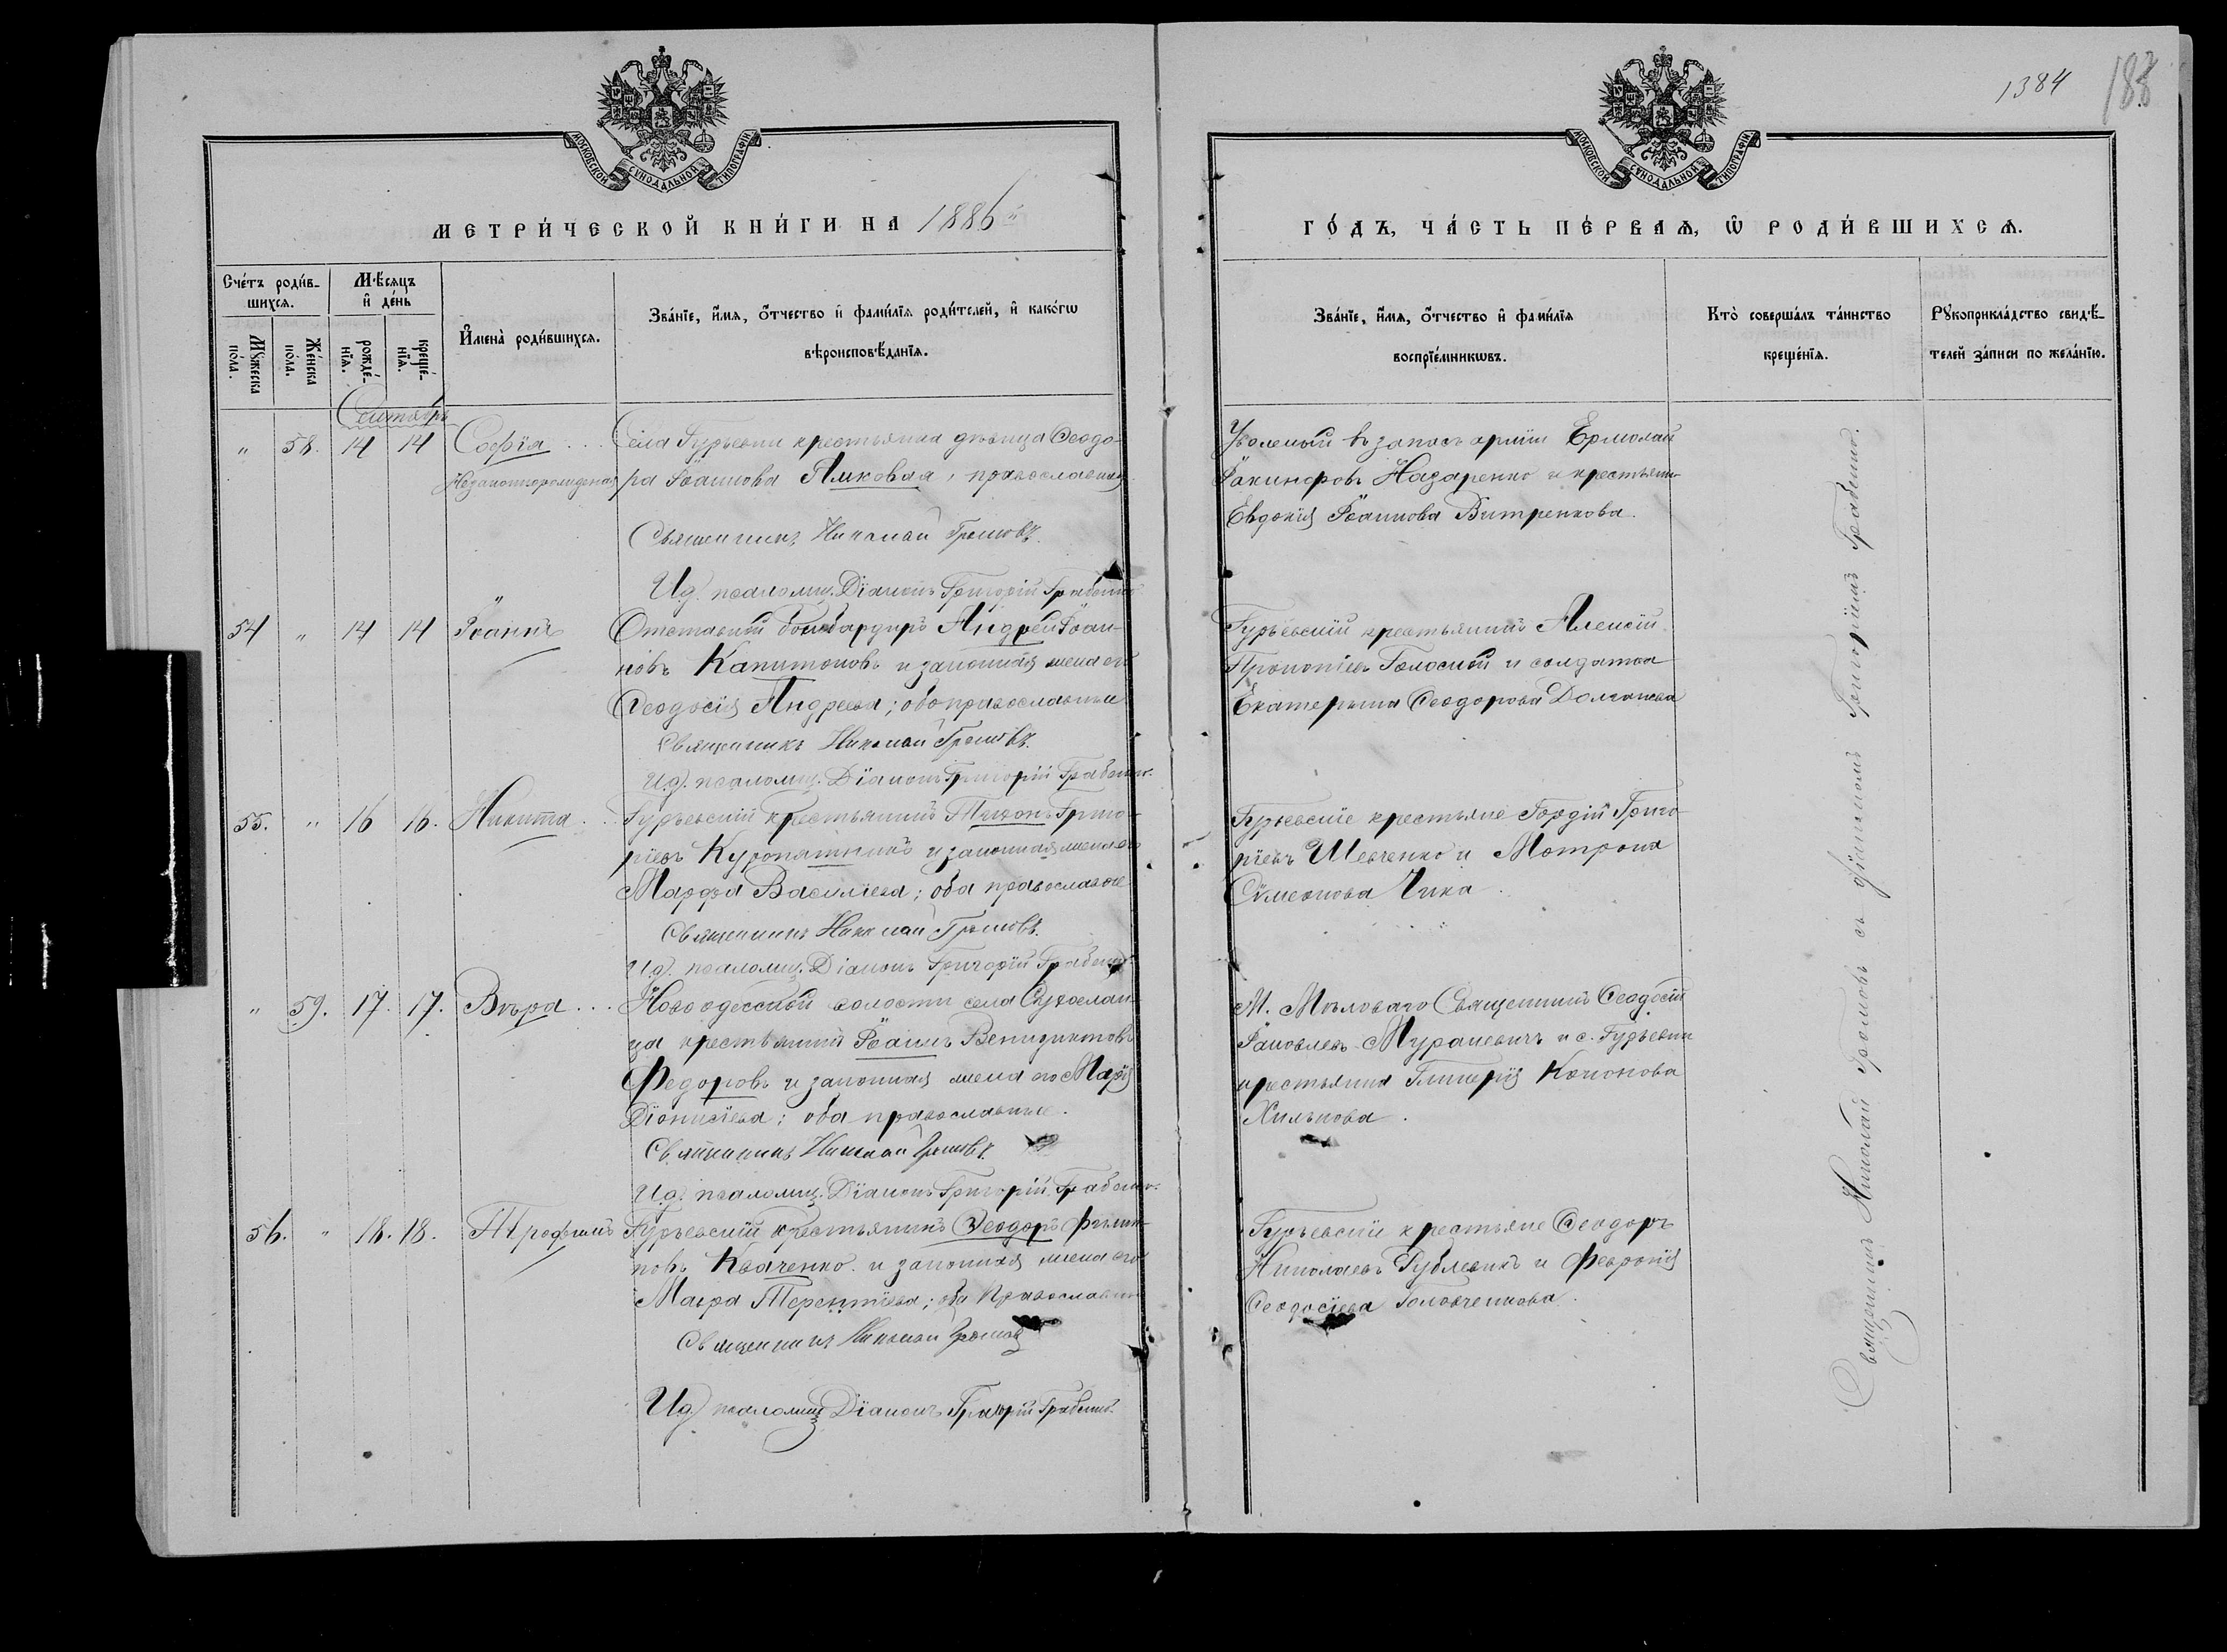 1384
188
МОСКОВСКОЙ СѴНОДАЛЬНОЙ ТИПОГРАФІИ
МОСКОВСКОЙ СѴНОДАЛЬНОЙ ТИПОГРАФІИ
МЕТРИ́ЧЕСКОЙ КНИ́ГИ НА 1886
ГО́ДЪ, ЧА́СТЬ ПЕ́РВАѦ, Ѡ҆ РОДИ́ВШИХСѦ.
Сче́тъ роди́в-
шихсѧ.
Мꙋ́жеска по́ла.
Же́нска по́ла.
Мѣ́сѧцъ
и҆ де́нь
рожде́-нїѧ.
креще́-нїѧ.
И҆мена̀ роди́вшихсѧ.
Зва́нїе, и҆́мѧ, ѻ҆́тчество и҆ фамѝлїѧ роди́телей, и҆ како́гѡ
вѣроисповѣ́данїѧ.
Зва́нїе, и҆́мѧ, ѻ҆́тчество и҆ фами́лїѧ
воспрїе́мникѡвъ.
Кто̀ соверша́лъ та́инство
креще́нїѧ.
Рꙋкоприкла́дство свидѣ́-
телей за́писи по жела́нїю.
Сентябрь
" 58. 14 14 Софія ... Села Гурьевки крестьянка дѣвица Ѳеодо-
Незаконнорожденная ра Іоаннова Ямковая, православная
Священникъ Николай Громовъ.
И.д. псаломщ. Діаконъ Григорій Грабенко
Уволеный въ запасъ арміи Ермолай
Іакинфовъ Назаренко и крестьянка
Евдокія Іоаннова Витренкова.
54 " 14 14 Іоаннъ Отставной бомбардиръ Андрей Іоан-
новъ Капитоновъ и законная жена его
Ѳеодосія Андреева; оба православные
Священникъ Николай Громовъ.
И.д. псаломщ. Діаконъ Григорій Грабенко.
Гурьевскій крестьянинъ Алексій
Прокопіевъ Голосной и солдатка
Екатерина Ѳеодорова Долганева
55. " 16 16. Никита .. Гурьевскій крестьянинъ Тихонъ Григо-
ріевъ Куропятникъ и законная жена его
Марфа Василіева; оба православные
Священникъ Николай Громовъ.
И.д. псаломщ. Діаконъ Григорій Грабенко
Гурьевскіе крестьяне Гордій Григо-
ріевъ Шевченко и Матрона
Сѵмеонова Чика.
" 59. 17. 17. Вѣра ... Новоодесской волости села Сухоелан-
ца крестьянинъ Іоаннъ Венидиктовъ
Федоровъ и законная жена его Марія
Діонисіева; оба православные.
Священникъ Николай Громовъ.
И.д. псаломщ. Діаконъ Григорій Грабенко.
М. Мѣловаго Священникъ Ѳеодосій
Іаковлевъ Мураневичъ и с. Гурьевки
крестьянка Гликерія Кононова
Хилькова.
56. " 18. 18. Трофимъ Гурьевскій крестьянинъ Ѳеодоръ Филип-
повъ Кваченко и законная жена его
Мавра Терентіева; оба Православные
Священникъ Николай Громовъ
И.д. псаломщ Діаконъ Григорій Грабенко.
Гурьевскіе крестьяне Ѳеодоръ
Николаевъ Рублевикъ и Феврония
Ѳеодосіева Головченкова.
Священникъ Николай Громовъ съ діакономъ Григоріемъ Грабенко.